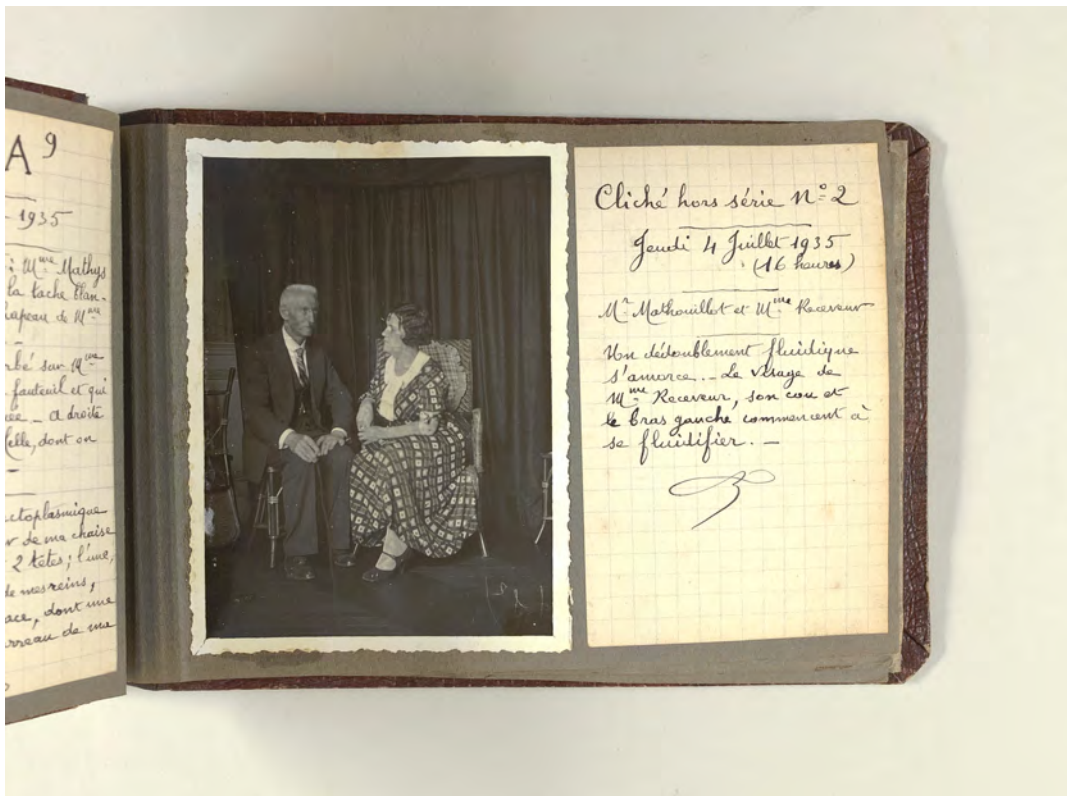 A⁹
- 1935
: Mᵐᵉ Mathys
la tache blan-
hapeau de Mᵐᵉ
rbé sur Mᵐᵉ
fauteuil et qui
ée _ A droite
celle, dont on
ctoplasmique
r de ma chaise
2 têtes ; l'une,
de mes reins,
ace, dont une
rreau de ma
Cliché hors série N° 2
Jeudi 4 Juillet 1935
(16 heures)
Mʳ Mathouillot et Mᵐᵉ Receveur
Un dédoublement fluidique
s'amorce. _ Le visage de
Mᵐᵉ Receveur, son cou et
le bras gauche commencent à
se fluidifier. _